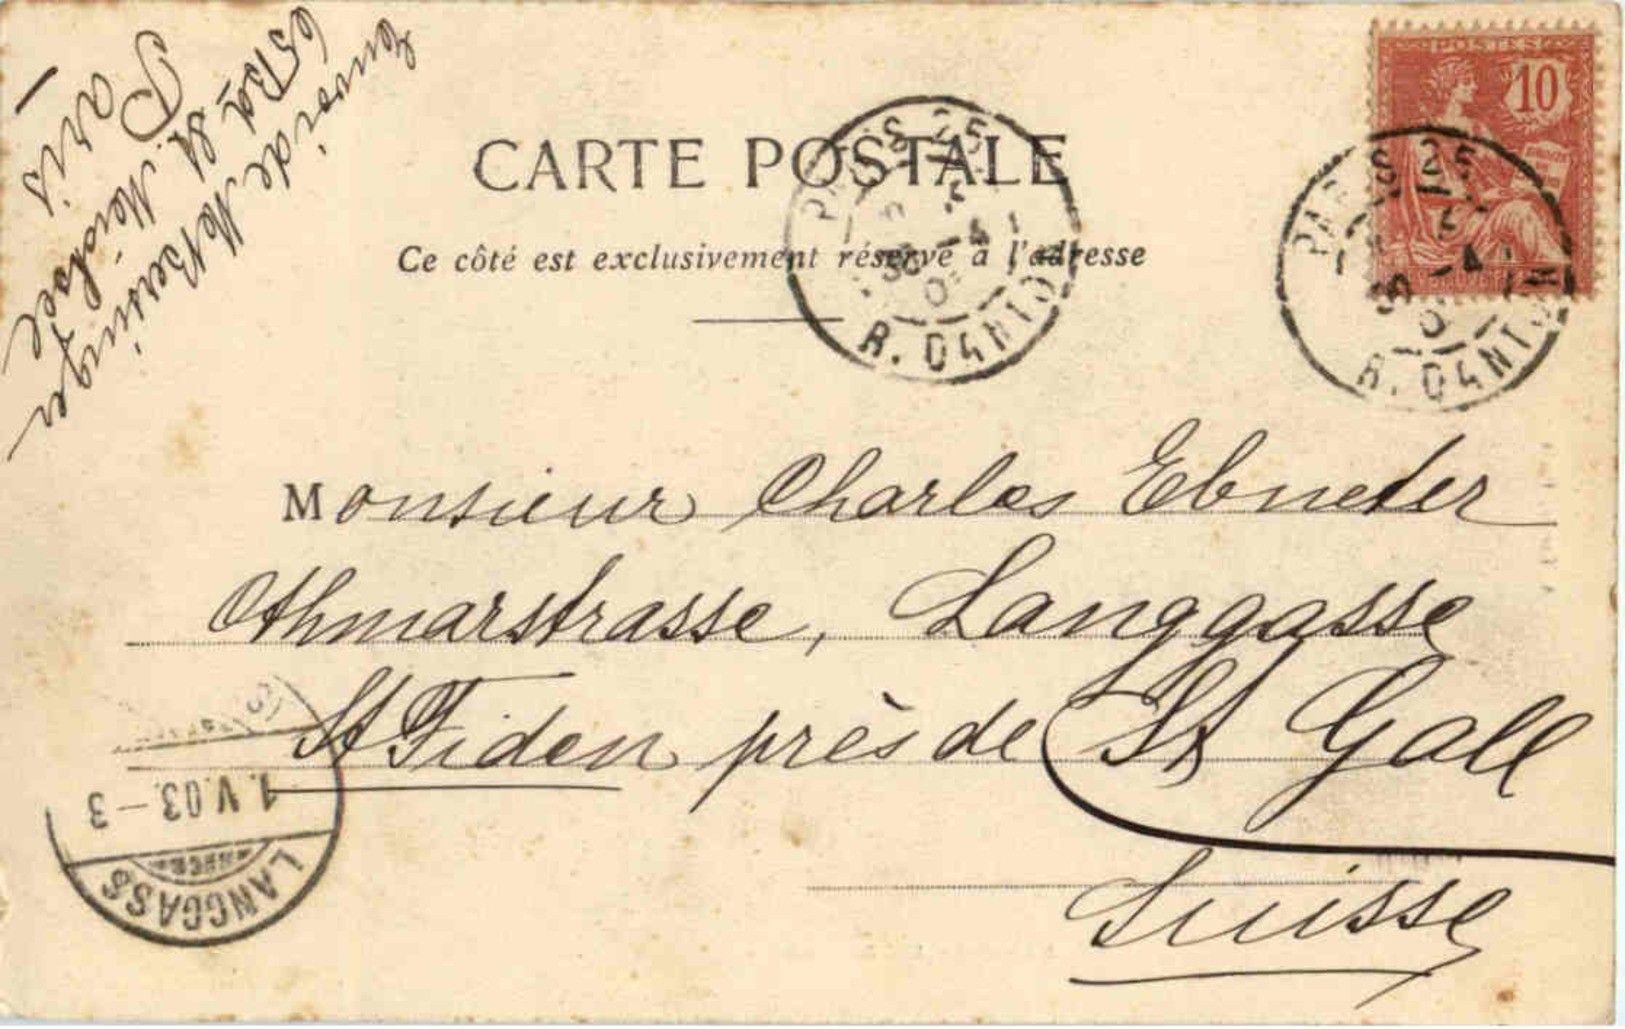 Envoi de M Versinger
65 Bd St Michel
Paris
POSTES
10
CARTE POSTALE
Ce côté est exclusivement réservé à l'adresse
PARIS 25
R. DANTON
PARIS 25
R. DANTON
Monsieur Charles Ebneter
Othmarstrasse, Langgasse
St Fiden près de St Gall
Suisse
1.V.03.-3
LANGGASS